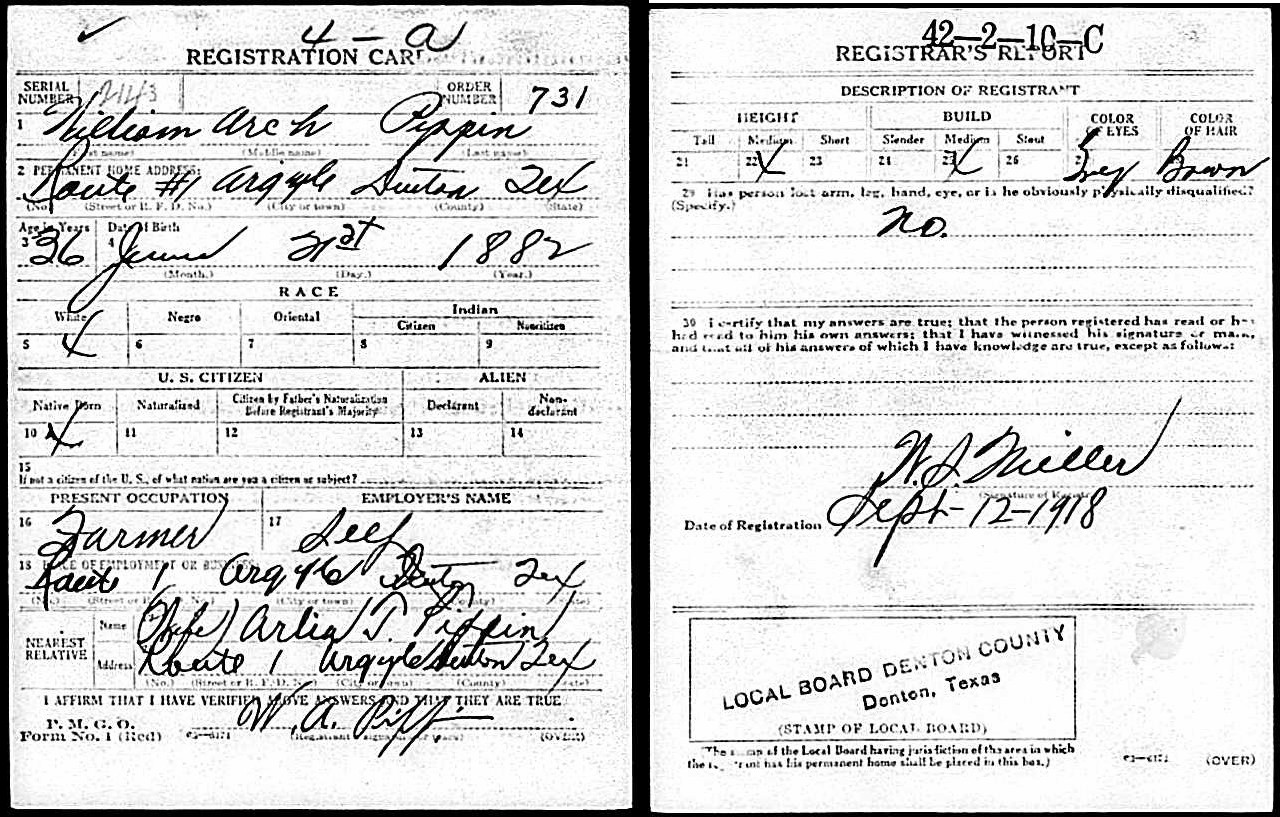 4 - a
REGISTRATION CARD
SERIAL NUMBER 2143 ORDER NUMBER 731
1 William Arch Pippin
(First name) (Middle name) (Last name)
2 PERMANENT HOME ADDRESS:
Route #1 Argyle Denton Tex
(No.) (Street or R. F. D. No.) (City or town) (County) (State)
Age in Years Date of Birth
3 36 4 June 21st 1882
(Month.) (Day.) (Year.)
RACE
White Negro Oriental Indian
Citizen Noncitizen
5 X 6 7 8 9
U. S. CITIZEN ALIEN
Native Born Naturalized Citizen by Father's Naturalization Before Registrant's Majority Declarant Non-declarant
10 X 11 12 13 14
15
If not a citizen of the U. S., of what nation are you a citizen or subject?
PRESENT OCCUPATION EMPLOYER'S NAME
16 Farmer 17 Self
18 PLACE OF EMPLOYMENT OR BUSINESS:
Route 1 Argyle Denton Tex
(No.) (Street or R. F. D. No.) (City or town) (County) (State)
NEAREST RELATIVE
Name (Wife) Arlia T. Pippin
Address Route 1 Argyle Denton Tex
(No.) (Street or R. F. D. No.) (City or town) (County) (State)
I AFFIRM THAT I HAVE VERIFIED ABOVE ANSWERS AND THAT THEY ARE TRUE
W. A. Pippin
P. M. G. O.
Form No. 1 (Red) (Registrant's signature or mark) (OVER)
42-2-10-C
REGISTRAR'S REPORT
DESCRIPTION OF REGISTRANT
HEIGHT BUILD COLOR OF EYES COLOR OF HAIR
Tall Medium Short Slender Medium Stout
21 22 X 23 24 25 X 26 27 Grey Brown
29 Has person lost arm, leg, hand, eye, or is he obviously physically disqualified?
(Specify.)
No.
30 I certify that my answers are true; that the person registered has read or has
had read to him his own answers; that I have witnessed his signature or mark,
and that all of his answers of which I have knowledge are true, except as follows:
W. S. Miller
(Signature of Registrar)
Date of Registration Sept-12-1918
LOCAL BOARD DENTON COUNTY
Denton, Texas
(STAMP OF LOCAL BOARD)
(The stamp of the Local Board having jurisdiction of the area in which
the registrant has his permanent home shall be placed in this box.)
03-6171 (OVER)